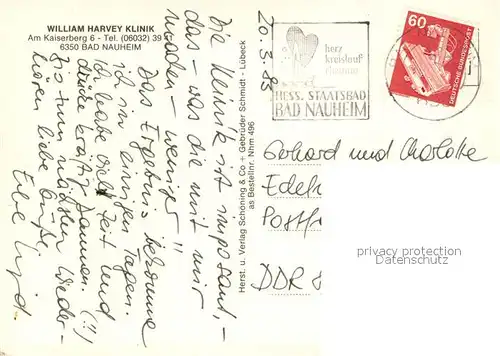 WILLIAM HARVEY KLINIK
Am Kaiserberg 6 - Tel. (06032) 39
6350 BAD NAUHEIM
20.3.83
Die Klinik ist imposant, -
das - was die mit mir
machen - weniger!!
Das Ergebnis bekomme
ich in einigen Tagen.
Ich habe viel Zeit und
drücke kräftig Daumen. (!!)
Bis zum nächsten Wieder-
hören liebe Grüße
Eure
Herst. u. Verlag Schöning & Co + Gebrüder Schmidt - Lübeck
as Bestellnr. Nhm 496
herz
kreislauf
rheuma
HESS. STAATSBAD
BAD NAUHEIM
60
DEUTSCHE BUNDESPOST
Gerhard und Charlotte
Postf
DDR
privacy protection
Datenschutz